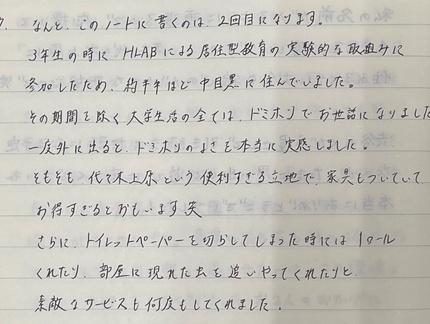 なんと、このノートに書くのは、2回目になります。
3年生の時に、HLABによる居住型教育の実験的な取組みに
参加したため、約半年ほど中目黒に住んでいました。
その期間を除く大学生活の全ては、ドミホリでお世話になりました
一度外に出ると、ドミホリのよさを本当に実感しました。
そもそも、代々木上原という便利すぎる立地で、家具もついていて
お得すぎるとおもいます笑
さらに、トイレットペーパーを切らしてしまった時には1ロール
くれたり、部屋に現れた虫を追いやってくれたりと、
素敵なサービスも何度もしてくれました。